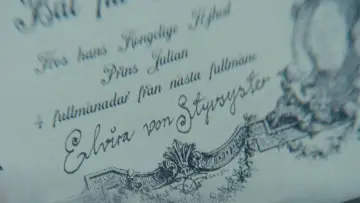 Bal för
Hos hans Kongelige Höjhed
Prins Julian
4 fullmånadar från nästa fullmåne
Elvira von Styvsyster